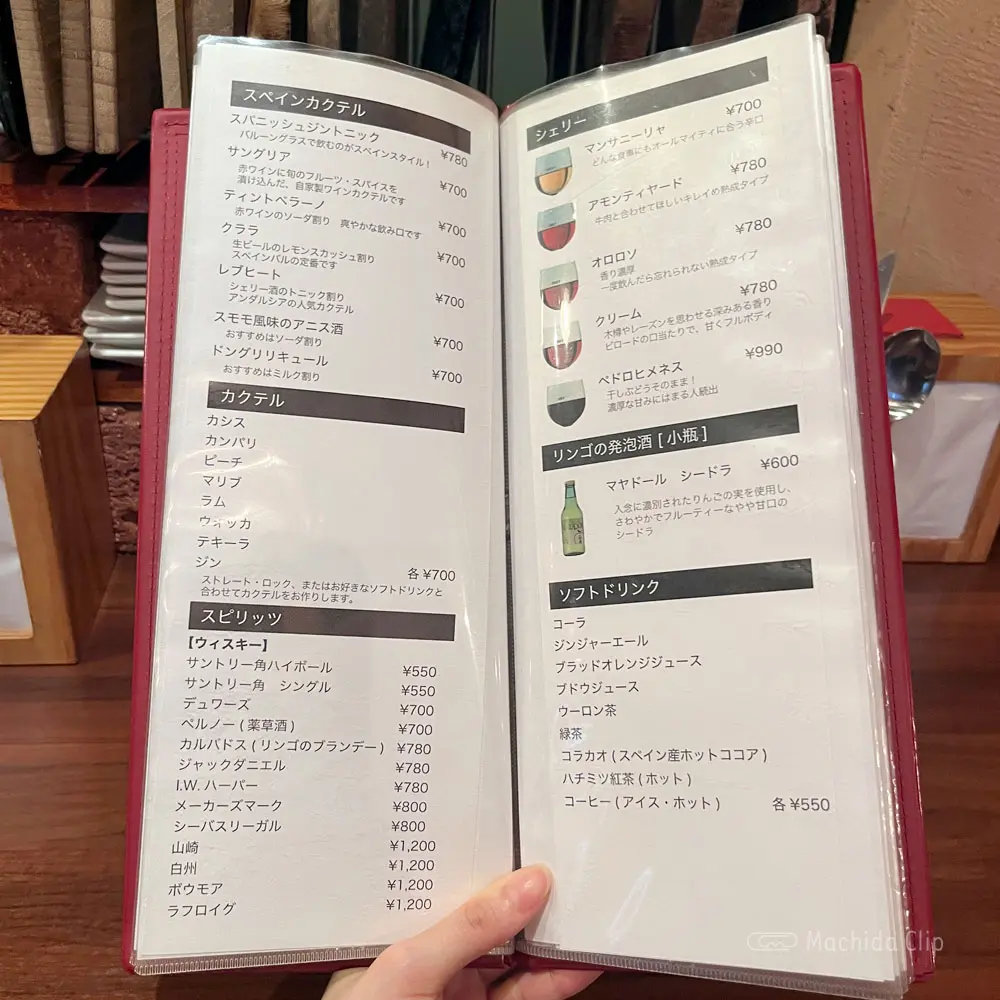 スペインカクテル
スパニッシュジントニック
バルーングラスで飲むのがスペインスタイル！ ¥780
サングリア
赤ワインに旬のフルーツ・スパイスを
漬け込んだ、自家製ワインカクテルです ¥700
ティントベラーノ
赤ワインのソーダ割り 爽やかな飲み口です ¥700
クララ
生ビールのレモンスカッシュ割り
スペインバルの定番です ¥700
レブヒート
シェリー酒のトニック割り
アンダルシアの人気カクテル ¥700
スモモ風味のアニス酒
おすすめはソーダ割り ¥700
ドングリリキュール
おすすめはミルク割り ¥700
カクテル
カシス
カンパリ
ピーチ
マリブ
ラム
ウォッカ
テキーラ
ジン 各 ¥700
ストレート・ロック、またはお好きなソフトドリンクと
合わせてカクテルをお作りします。
スピリッツ
【ウィスキー】
サントリー角ハイボール ¥550
サントリー角 シングル ¥550
デュワーズ ¥700
ペルノー ( 薬草酒 ) ¥700
カルバドス ( リンゴのブランデー ) ¥780
ジャックダニエル ¥780
I.W. ハーパー ¥780
メーカーズマーク ¥800
シーバスリーガル ¥800
山崎 ¥1,200
白州 ¥1,200
ボウモア ¥1,200
ラフロイグ ¥1,200
シェリー
マンサニーリャ ¥700
どんな食事にもオールマイティに合う辛口
アモンティヤード ¥780
牛肉と合わせてほしいキレイめ熟成タイプ
オロロソ ¥780
香り濃厚
一度飲んだら忘れられない熟成タイプ
クリーム ¥780
木樽やレーズンを思わせる深みある香り
ビロードの口当たりで、甘くフルボディ
ペドロヒメネス ¥990
干しぶどうそのまま！
濃厚な甘みにはまる人続出
リンゴの発泡酒 [ 小瓶 ]
マヤドール シードラ ¥600
入念に選別されたりんごの実を使用し、
さわやかでフルーティーなやや甘口の
シードラ
ソフトドリンク
コーラ
ジンジャーエール
ブラッドオレンジジュース
ブドウジュース
ウーロン茶
緑茶
コラカオ ( スペイン産ホットココア )
ハチミツ紅茶 ( ホット )
コーヒー ( アイス・ホット ) 各 ¥550
Machida Clip